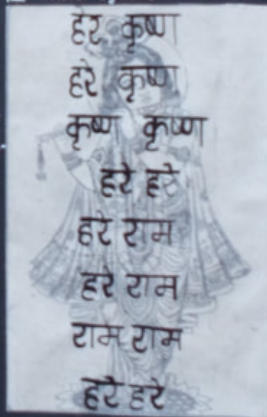 हरे कृष्ण
हरे कृष्ण
कृष्ण कृष्ण
हरे हरे
हरे राम
हरे राम
राम राम
हरे हरे